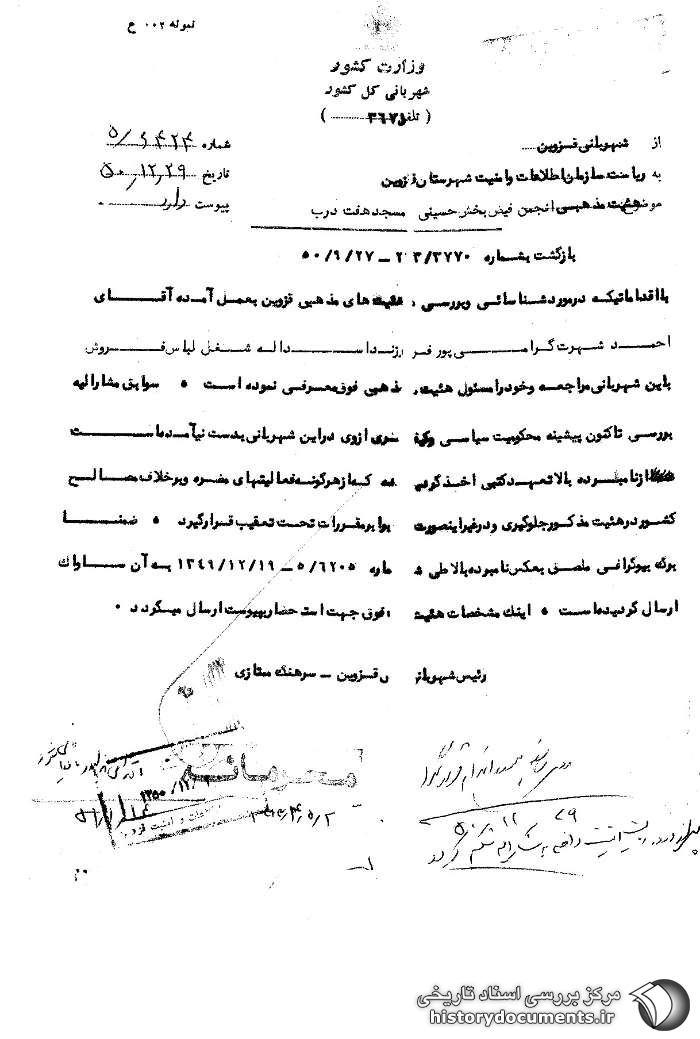 نمونه ۰۰۲ ع
وزارت کشور
شهربانی کل کشور
( تلفن ۳۶۷۱ )
شماره ۵/۶۴۲۴
تاریخ ۵۰،۱۲،۲۹
پیوست دارد
از شهربانی قزوین
به ریاست سازمان اطلاعات و امنیت شهرستان قزوین
موضوع هیئت مذهبی انجمن فیض بخش حسینی مسجد هفت درب
بازگشت بشماره ۲۰۳/۳۷۷۰ ـ ۵۰/۹/۲۷
با اقداماتیکه در مورد شناسائی و بررسی هیئت های مذهبی قزوین بعمل آمده آقای
احمد شهرت گرامی پور فرزند اسداله شغل لباس فروش
باین شهربانی مراجعه و خود را مسئول هیئت مذهبی فوق معرفی نموده است ۰ سوابق مشارالیه
بررسی تاکنون پیشینه محکومیت سیاسی و کیفری از وی در این شهربانی بدست نیآمده است
از نامبرده بالا تعهد کتبی اخذ گردیده که از هرگونه فعالیتهای مضره و برخلاف مصالح
کشور در هیئت مذکور جلوگیری و در غیر اینصورت برابر مقررات تحت تعقیب قرار گیرد ۰ ضمنا
برگ بیوگرافی ملصق بعکس نامبرده بالا طی شماره ۵/۶۲۰۵ ـ ۱۳۴۹/۱۲/۱۹ به آن ساواک
ارسال گردیده است ۰ اینک مشخصات هیئت فوق جهت استحضار بپیوست ارسال میگردد ۰
رئیس شهربانی قزوین ـ سرهنگ ممتازی
محرمانه
۵۰/۱۲/۲۹
مرکز بررسی اسناد تاریخی
historydocuments.ir